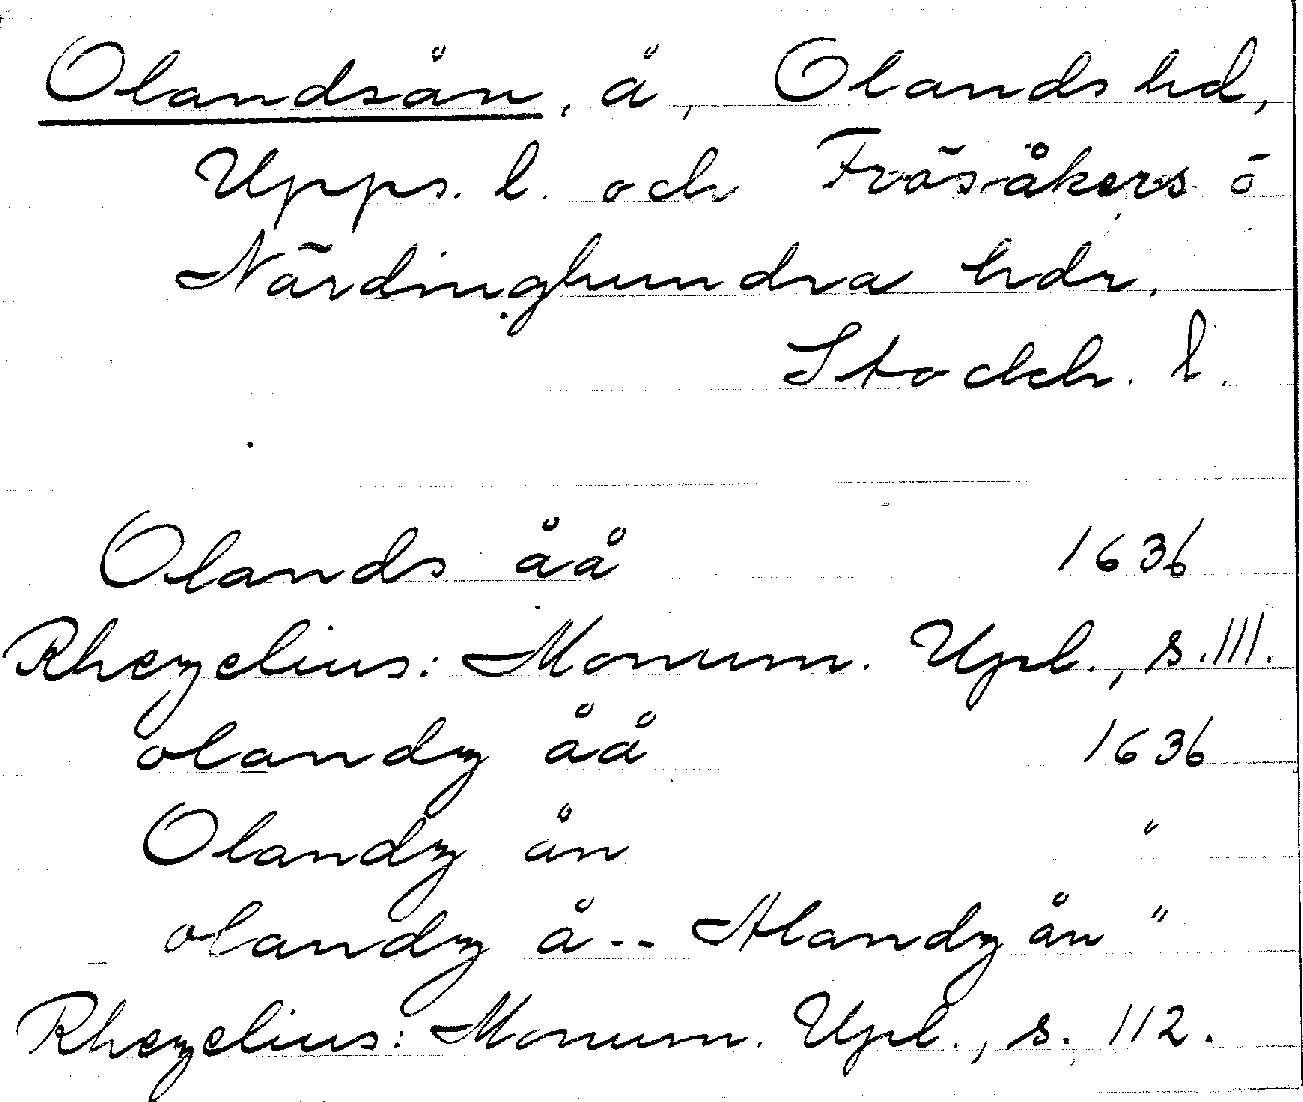 Olandsån, å, Olands hd,
Upps. l. och Frösåkers o
Närdinghundra hdr.
Stockh. l.
Olands åå 1636
Rhezelius: Monum. Upl., s. 111.
olandz åå 1636
Olandz ån "
olandz å -- Alandz ån "
Rhezelius: Monum. Upl., s. 112.